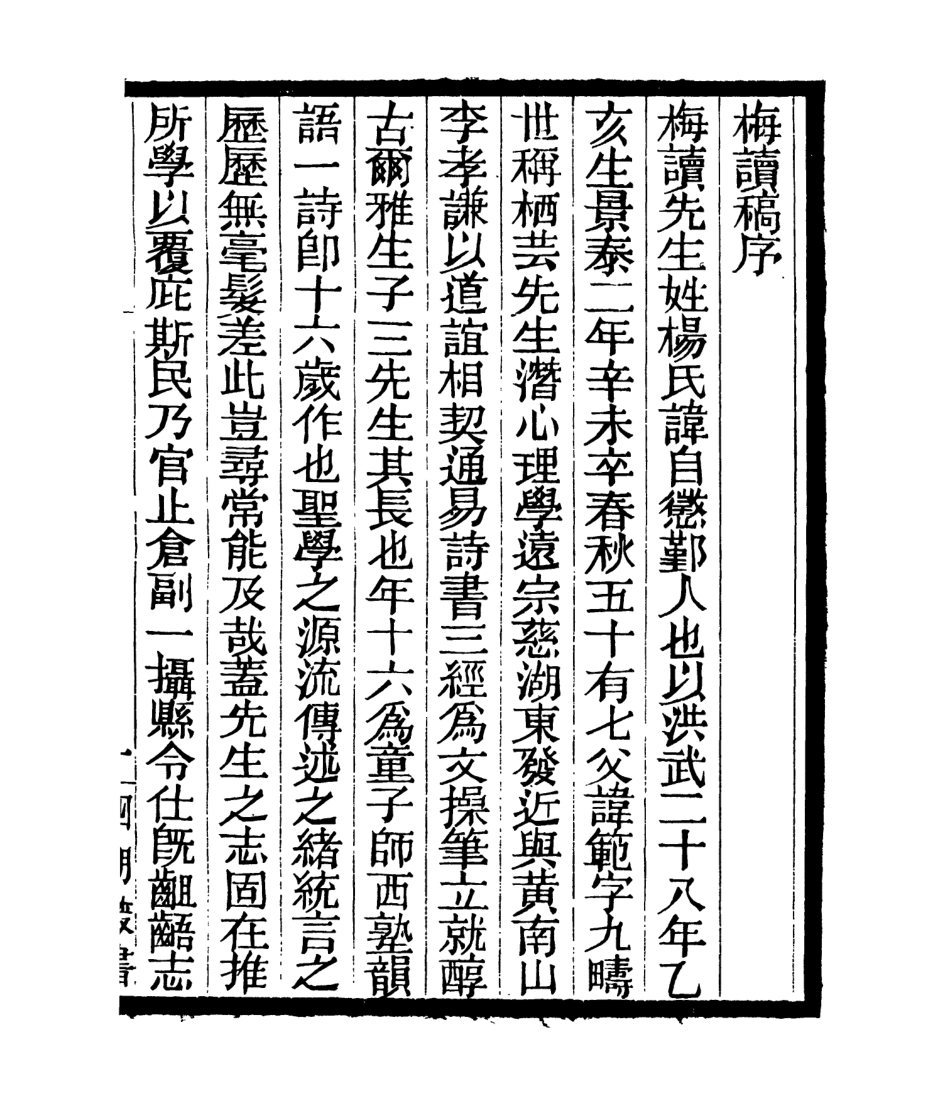 梅讀稿序
梅讀先生姓楊氏諱自懲鄞人也以洪武二十八年乙
亥生景泰二年辛未卒春秋五十有七父諱範字九疇
世稱栖芸先生潛心理學遠宗慈湖東發近與黄南山
李孝謙以道誼相契通易詩書三經爲文操筆立就醇
古爾雅生子三先生其長也年十六爲童子師西塾韻
語一詩卽十六歲作也聖學之源流傳述之緒統言之
歷歷無毫髮差此豈尋常能及哉蓋先生之志固在推
所學以覆庇斯民乃官止倉副一攝縣令仕旣齟齬志
四明叢書